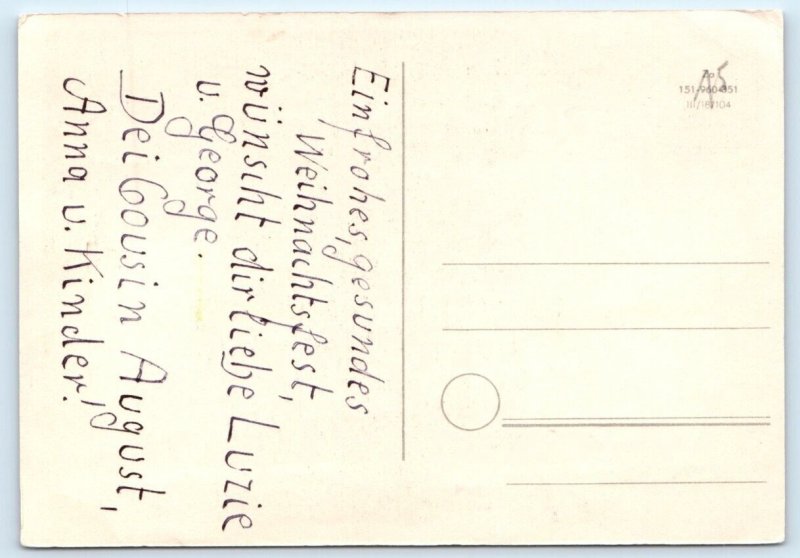 Ein frohes, gesundes
Weihnachtsfest,
wünscht dir liebe Luzie
u. George.
Dei Cousin August,
Anna u. Kinder!
III/18/104